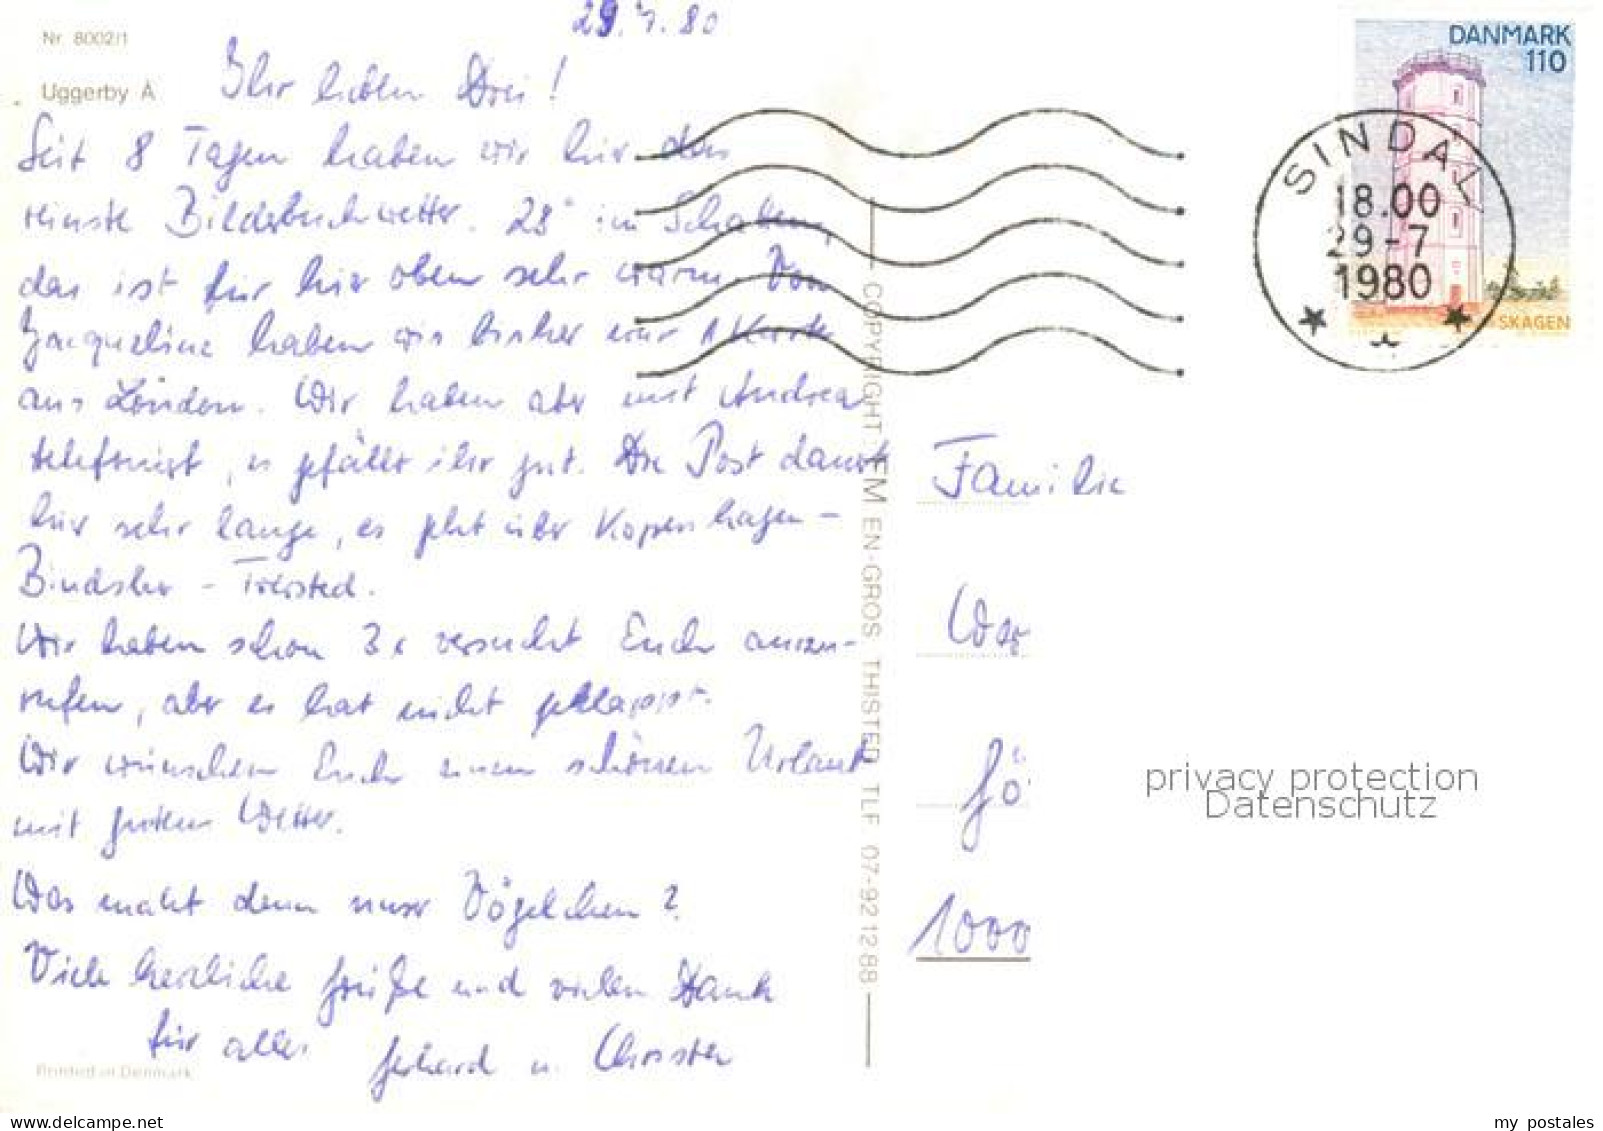 29.7.80
Nr. 8002/1
Uggerby Å
Ihr lieben Drei!
Seit 8 Tagen haben wir hier das
reinste Bilderbuchwetter. 28° im Schatten,
das ist für hier oben sehr warm. Von
Jacqueline haben wir bisher nur 1 Karte
aus London. Wir haben aber mit Andrea
telefoniert, es gefällt ihr gut. Die Post dauert
hier sehr lange, es geht über Kopenhagen -
Bindslev - Tversted.
Wir haben schon 3x versucht Euch anzu-
rufen, aber es hat nicht geklappt.
Wir wünschen Euch einen schönen Urlaub
mit gutem Wetter.
Was macht denn unser Vögelchen?
Viele herzliche Grüße und vielen Dank
für alles Gerhard u. Christa
Printed in Denmark
COPYRIGHT: FM EN-GROS THISTED TLF 07-92 12 88
DANMARK
110
SKAGEN
SINDAL
18.00
29-7
1980
Familie
1000
privacy protection
Datenschutz
my postales